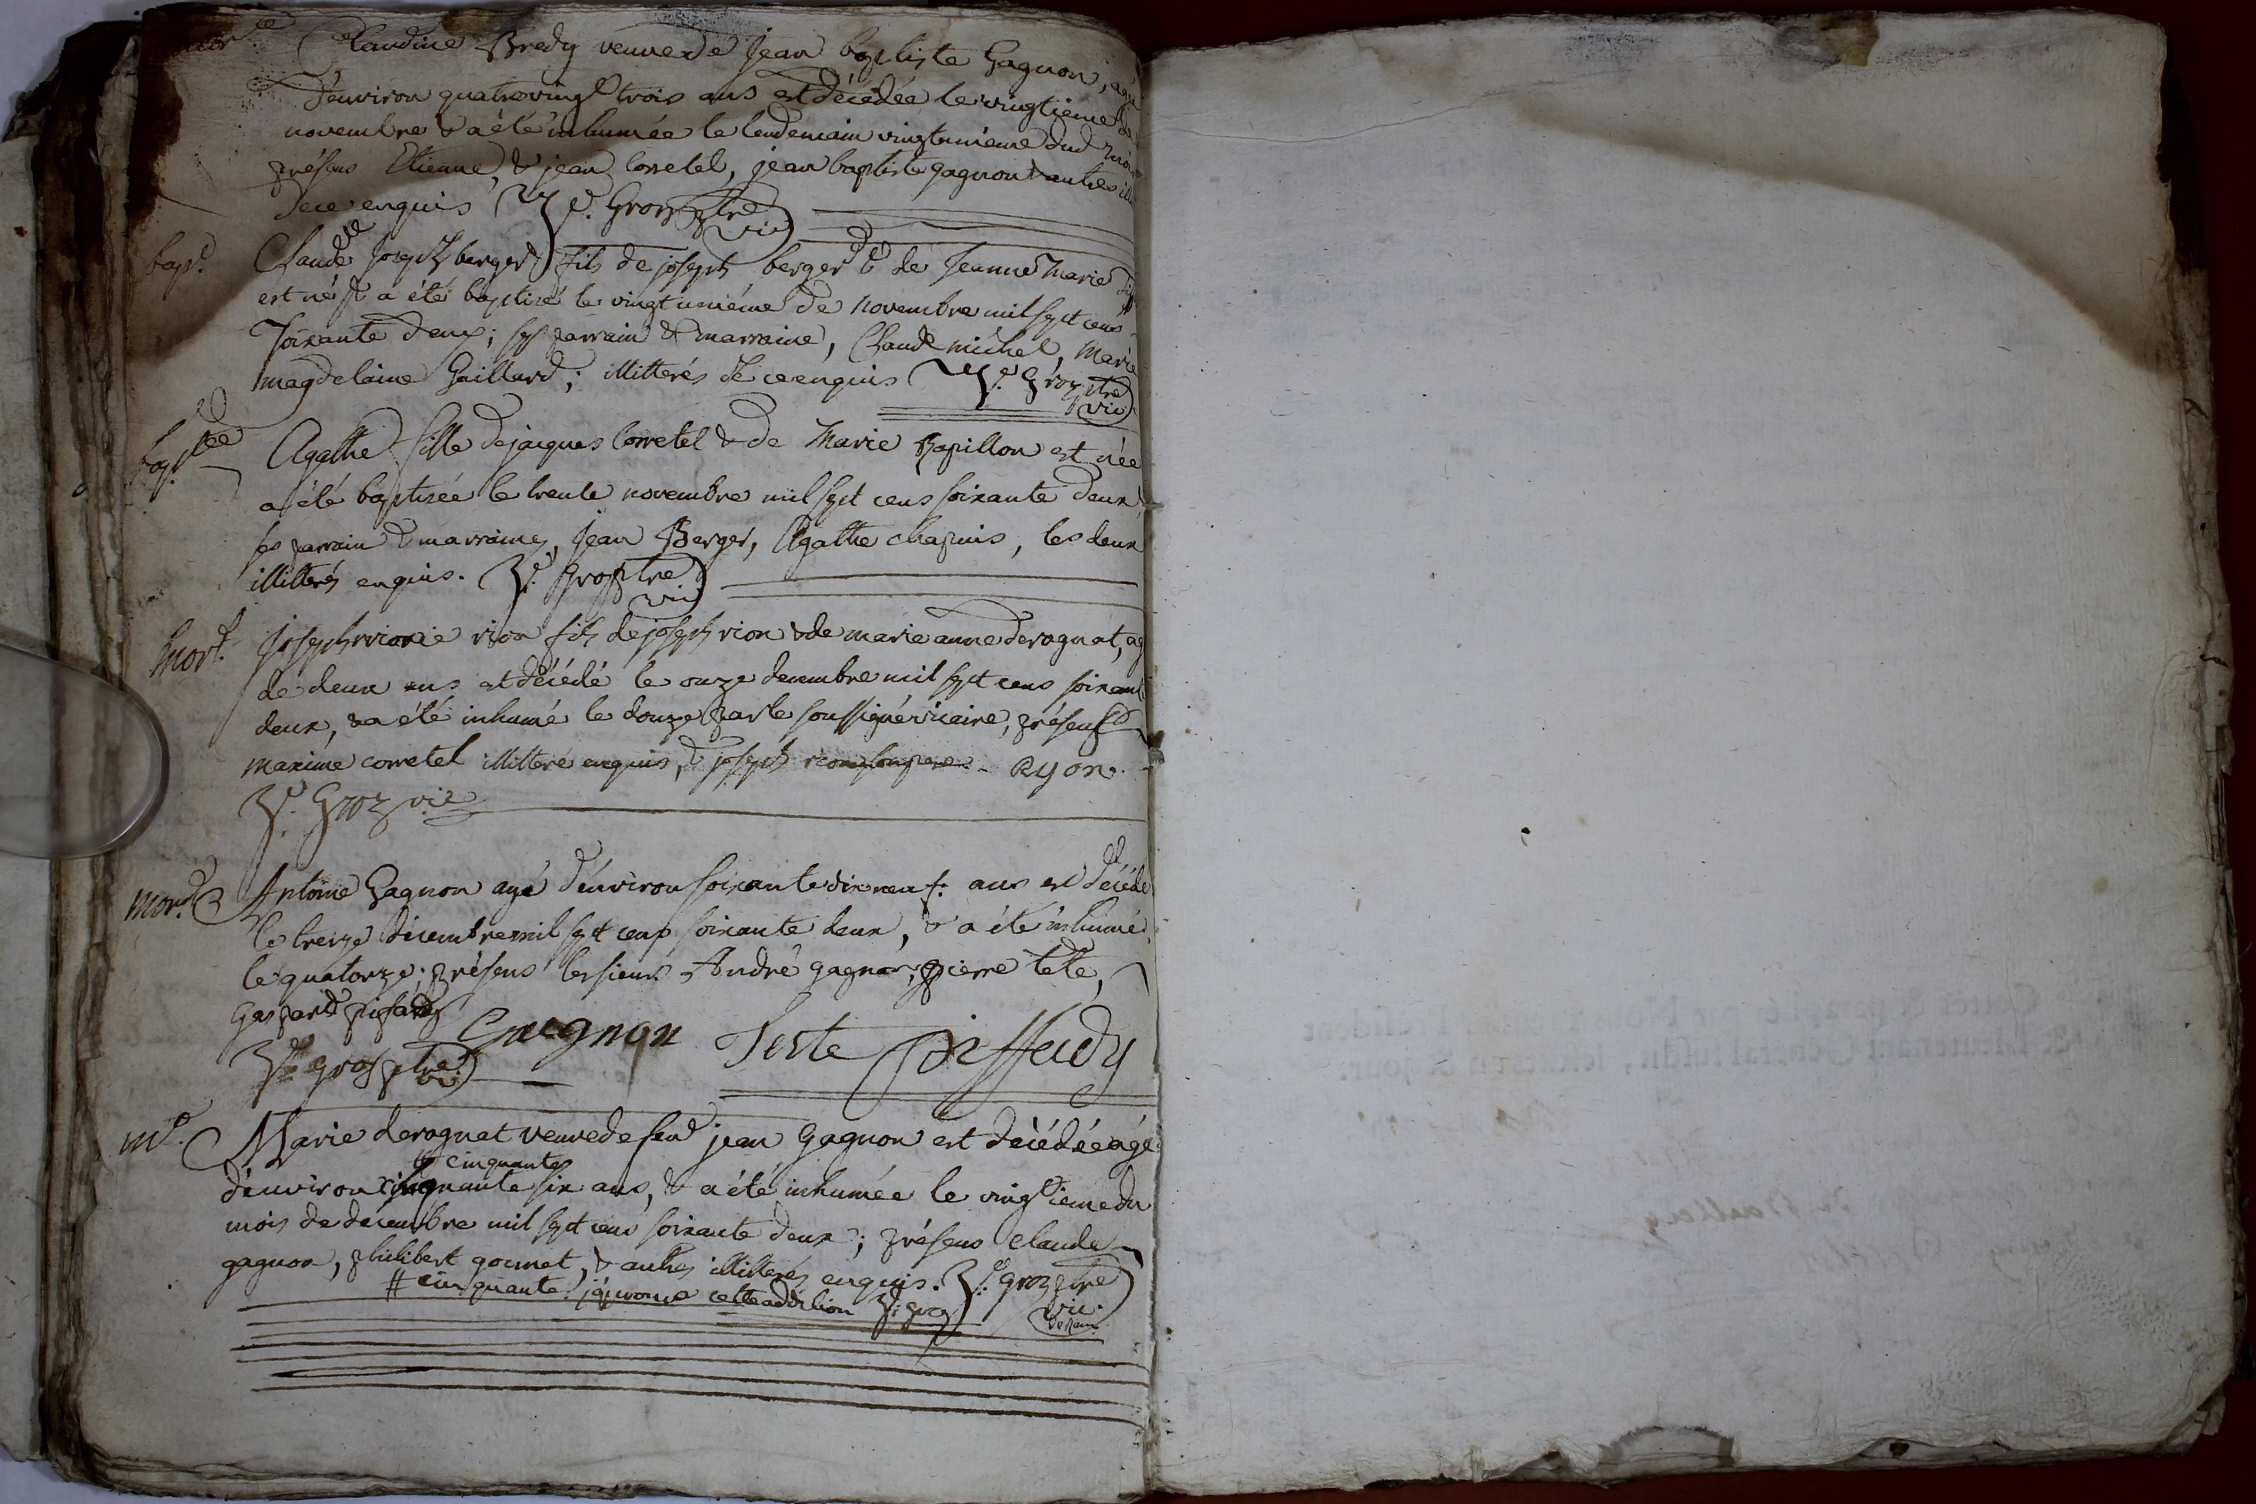 Claudine Bredy veuve de Jean baptiste Gagnon, agée
d'environ quatrevingt trois ans est décédée le vingtieme de
novembre & a été inhumée le lendemain vingtunieme dud mois
présens Etienne, & jean Corretel, jean baptiste gagnon & autres ill.
de ce enquis J. Groz ptre
vic
bap.
Claude Joseph berger fils de joseph berger & de Jeanne Marie
est né & a été baptisé le vingtuniéme de novembre mil sept cens
soixante deux; ses parrain & marraine, Claude michel, Marie
magdelaine Gaillard; illitterés de ce enquis J. Groz ptre
vic
bap.
Agathe fille de jacques Corretel & de Marie Papillon est née
a été baptisée le trente novembre mil sept cens soixante deux,
ses parrain & marraine, Jean Berger, Agathe chapuis, les deux
illitterés enquis. J. Groz ptre
vic
mort.
Joseph marie rion fils de joseph rion & de marie anne derognat, agé
de deux ans est décédé le onze decembre mil sept cens soixante
deux, & a été inhumé le douze par le soussigné vicaire, présens
maxime corretel illitteré enquis, & joseph rion son pere. Ryon.
J. Groz vic
mort.
Antoine Gagnon agé d'énviron soixante dix neuf ans est décédé
le treize décembre mil sept cens soixante deux, & a été inhumé
le quatorze; présens les sieurs André gagnon, pierre tête,
Gaspard piffady
Gagnon Teste Piffady
J. groz ptre
vic
m.
Marie derognat veuve de feu jean Gagnon est décédée agée
# cinquante
d'environ cinquante six ans, & a été inhumée le vingtieme du
mois de decembre mil sept cens soixante deux; présens claude
gagnon, philibert gournet, & autres illitterés enquis. J. groz ptre
vic.
# cinquante j'aprouve cette addition J. groz